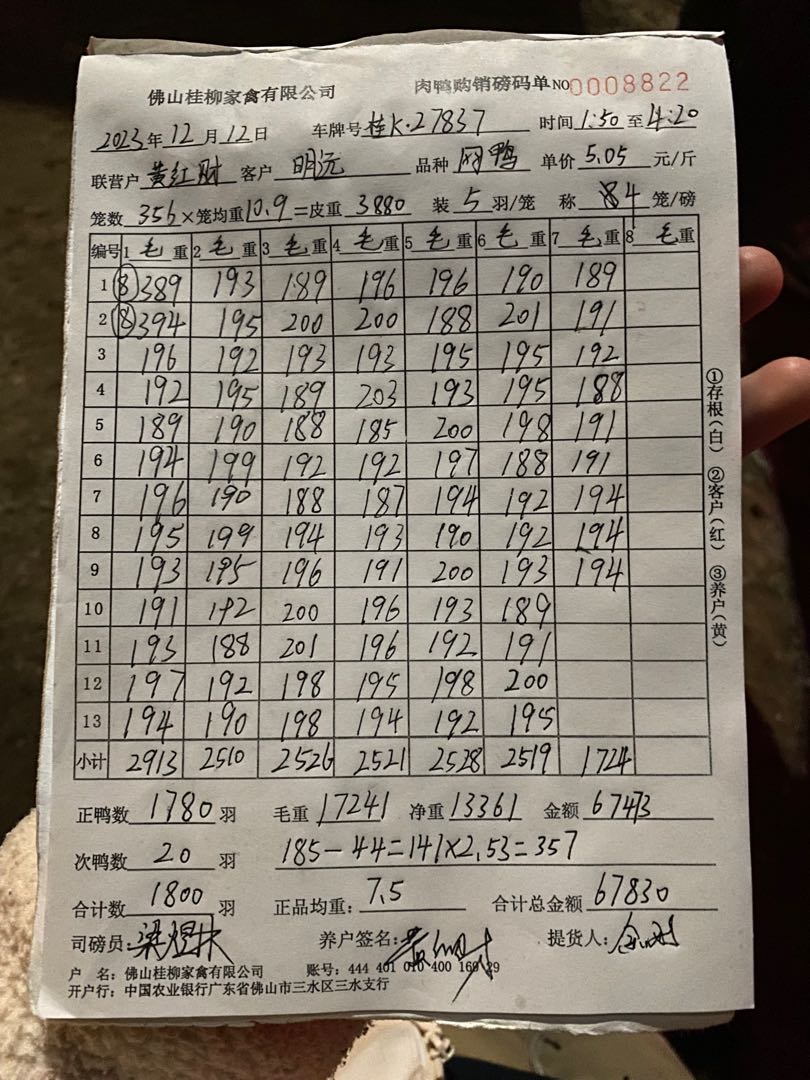 佛山桂柳家禽有限公司 肉鸭购销磅码单 NO0008822
2023年12月12日 车牌号 桂K·27837 时间1:50至4:20
联营户 黄红财 客户 明沅 品种 网鸭 单价 5.05 元/斤
笼数 356×笼均重10.9=皮重 3880 装 5 羽/笼 称 4 笼/磅
编号 1 毛重 2 毛重 3 毛重 4 毛重 5 毛重 6 毛重 7 毛重 8 毛重
1 ⑧389 193 189 196 196 190 189
2 ⑧394 195 200 200 188 201 191
3 196 192 193 193 195 195 192
4 192 195 189 203 193 195 188
5 189 190 188 185 200 198 191
6 194 199 192 192 197 188 191
7 196 190 188 187 194 192 194
8 195 199 194 193 190 192 194
9 193 195 196 191 200 193 194
10 191 192 200 196 193 189
11 193 188 201 196 192 191
12 197 192 198 195 198 200
13 194 190 198 194 192 195
小计 2913 2510 2526 2521 2528 2519 1724
正鸭数 1780 羽 毛重 17241 净重 13361 金额 67473
次鸭数 20 羽 185-44=141×2.53=357
合计数 1800 羽 正品均重: 7.5 合计总金额 67830
司磅员: 梁煜林 养户签名: 提货人:
户 名: 佛山桂柳家禽有限公司 账号: 444 401 010 400 169 29
开户行: 中国农业银行广东省佛山市三水区三水支行
①存根(白) ②客户(红) ③养户(黄)